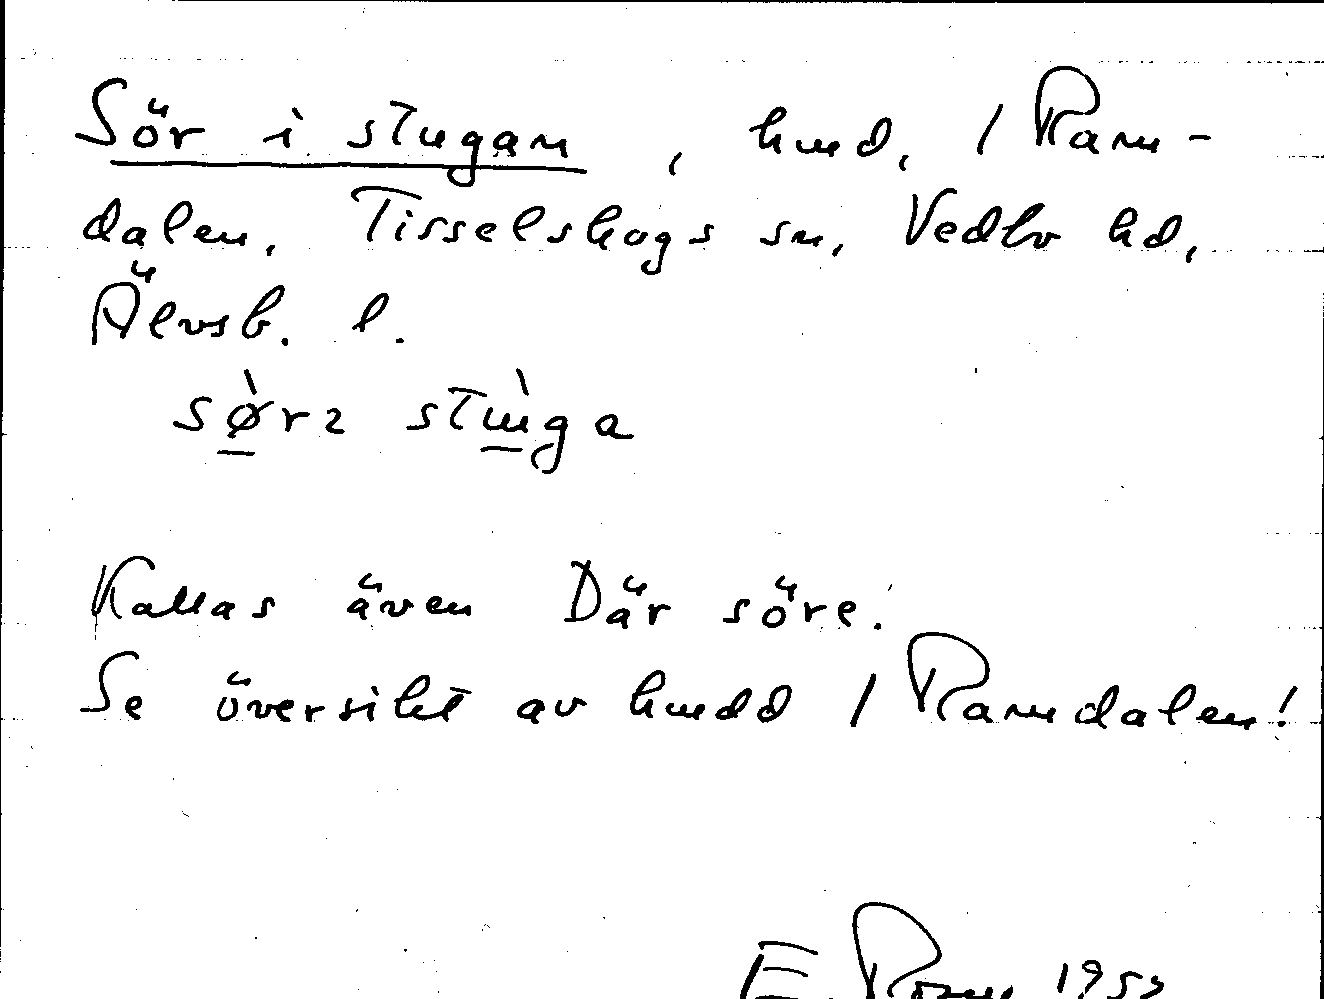 Sör i stugan, hmd, 1 Ram-
dalen, Tisselskogs sn, Vedbo hd,
Älvsb. l.
Kallas även Där söre.
Se översikt av hmdd 1 Ramdalen!
E.